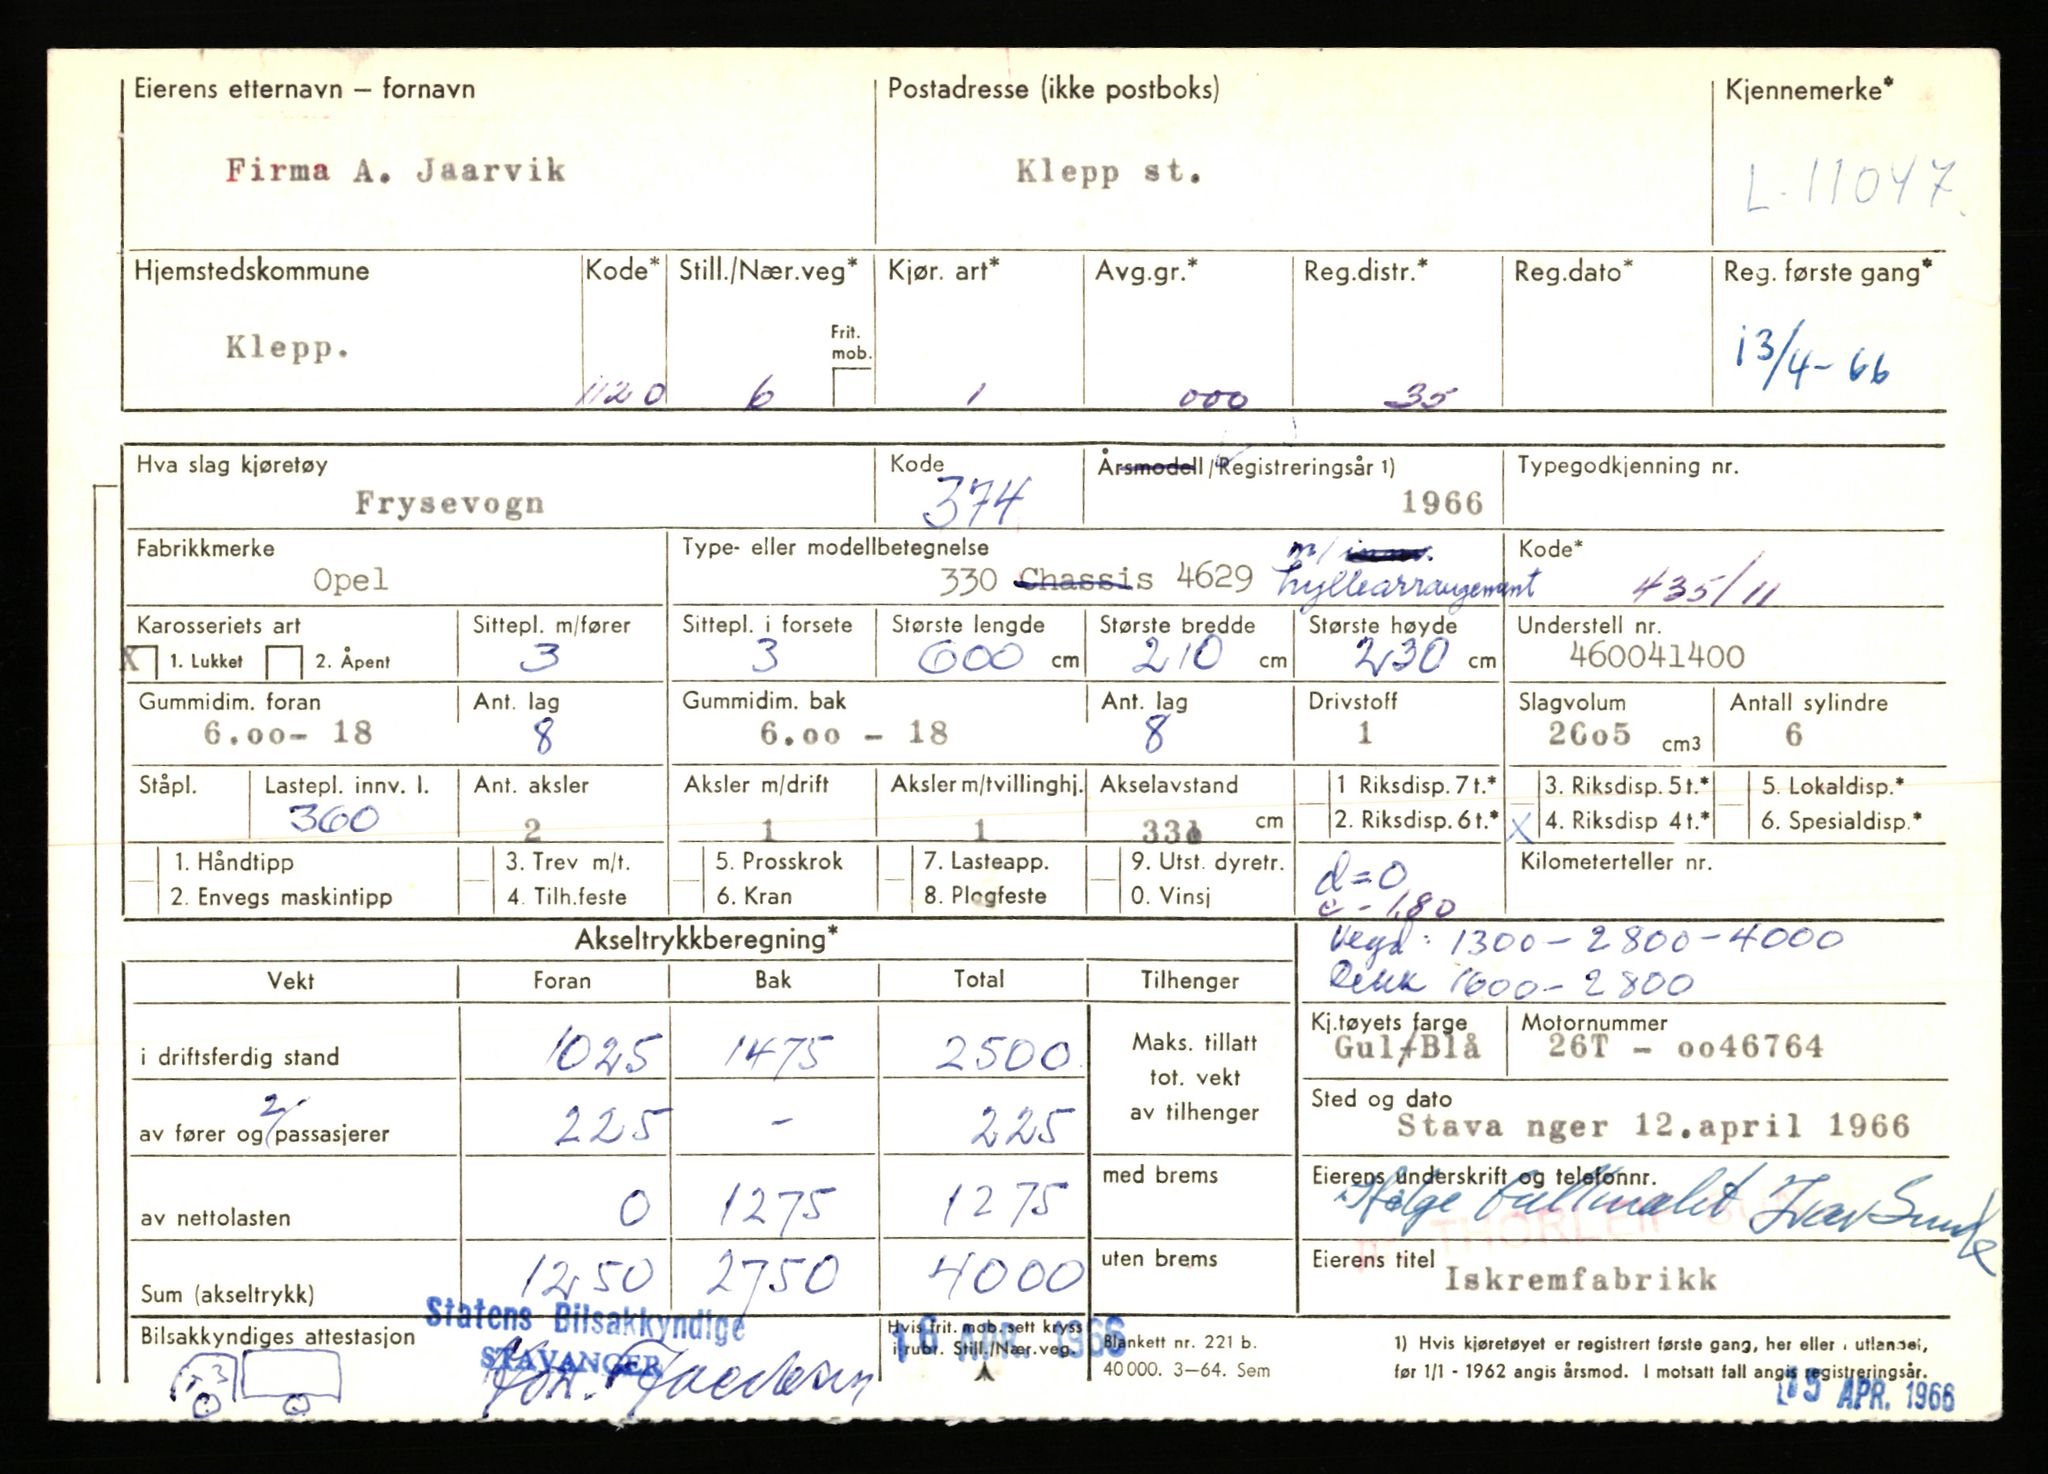 Eierens etternavn – fornavn Postadresse (ikke postboks) Kjennemerke*
Firma A. Jaarvik Klepp st. L-11047.
Hjemstedskommune Kode* Still./Nær.veg* Kjør. art* Avg.gr.* Reg.distr.* Reg.dato* Reg. første gang*
Klepp. Frit. mob. 13/4-66
1120 6 1 000 35
Hva slag kjøretøy Kode Årsmodell/Registreringsår 1) Typegodkjenning nr.
Frysevogn 374 1966
Fabrikkmerke Type- eller modellbetegnelse m/ Kode*
Opel 330 Chassis 4629 hyllearrangement 435/11
Karosseriets art Sittepl. m/fører Sittepl. i forsete Største lengde Største bredde Største høyde Understell nr.
X 1. Lukket 2. Åpent 3 3 600 cm 210 cm 230 cm 460041400
Gummidim. foran Ant. lag Gummidim. bak Ant. lag Drivstoff Slagvolum Antall sylindre
6.oo- 18 8 6.oo - 18 8 1 26o5 cm3 6
Ståpl. Lastepl. innv. l. Ant. aksler Aksler m/drift Aksler m/tvillinghj. Akselavstand 1 Riksdisp. 7 t.* 3. Riksdisp. 5 t.* 5. Lokaldisp.*
360 2 1 1 cm 2. Riksdisp. 6 t.* X 4. Riksdisp 4 t.* 6. Spesialdisp.*
1. Håndtipp 3. Trev m/t. 5. Prosskrok 7. Lasteapp. 9. Utst. dyretr. d=0 Kilometerteller nr.
2. Envegs maskintipp 4. Tilh.feste 6. Kran 8. Plogfeste 0. Vinsj c - 1.80
Akseltrykkberegning* Vegd: 1300-2800-4000
Vekt Foran Bak Total Tilhenger Dekk 1600-2800
i driftsferdig stand 1025 1475 2500 Maks. tillatt tot. vekt av tilhenger Kj.tøyets farge Motornummer
Gul/Blå 26T - oo46764
av fører og 2/ passasjerer 225 - 225 Sted og dato
Stava nger 12.april 1966
av nettolasten 0 1275 1275 med brems Eierens underskrift og telefonnr.
THORLEIF
Sum (akseltrykk) 1250 2750 4000 uten brems Eierens titel
Iskremfabrikk
Bilsakkyndiges attestasjon Statens Bilsakkyndige Hvis frit. mob. sett kryss Blankett nr. 221 b. 1) Hvis kjøretøyet er registrert første gang, her eller i utlandet,
STAVANGER i rubr. Still./Nær.veg. APR. 1966 40 000. 3–64. Sem før 1/1 - 1962 angis årsmod. I motsatt fall angis registreringsår.
15 APR. 1966